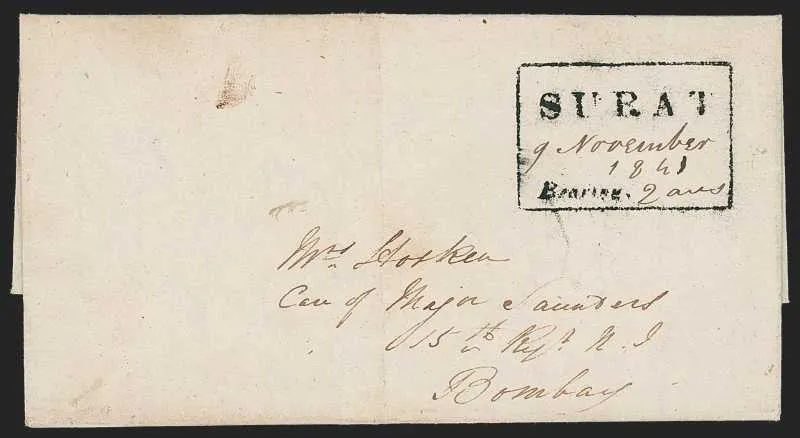 SURAT
9 November
1841
Bearing. 2 ans
Mrs Hosken
Care of Major Saunders
15th Regt N. I
Bombay